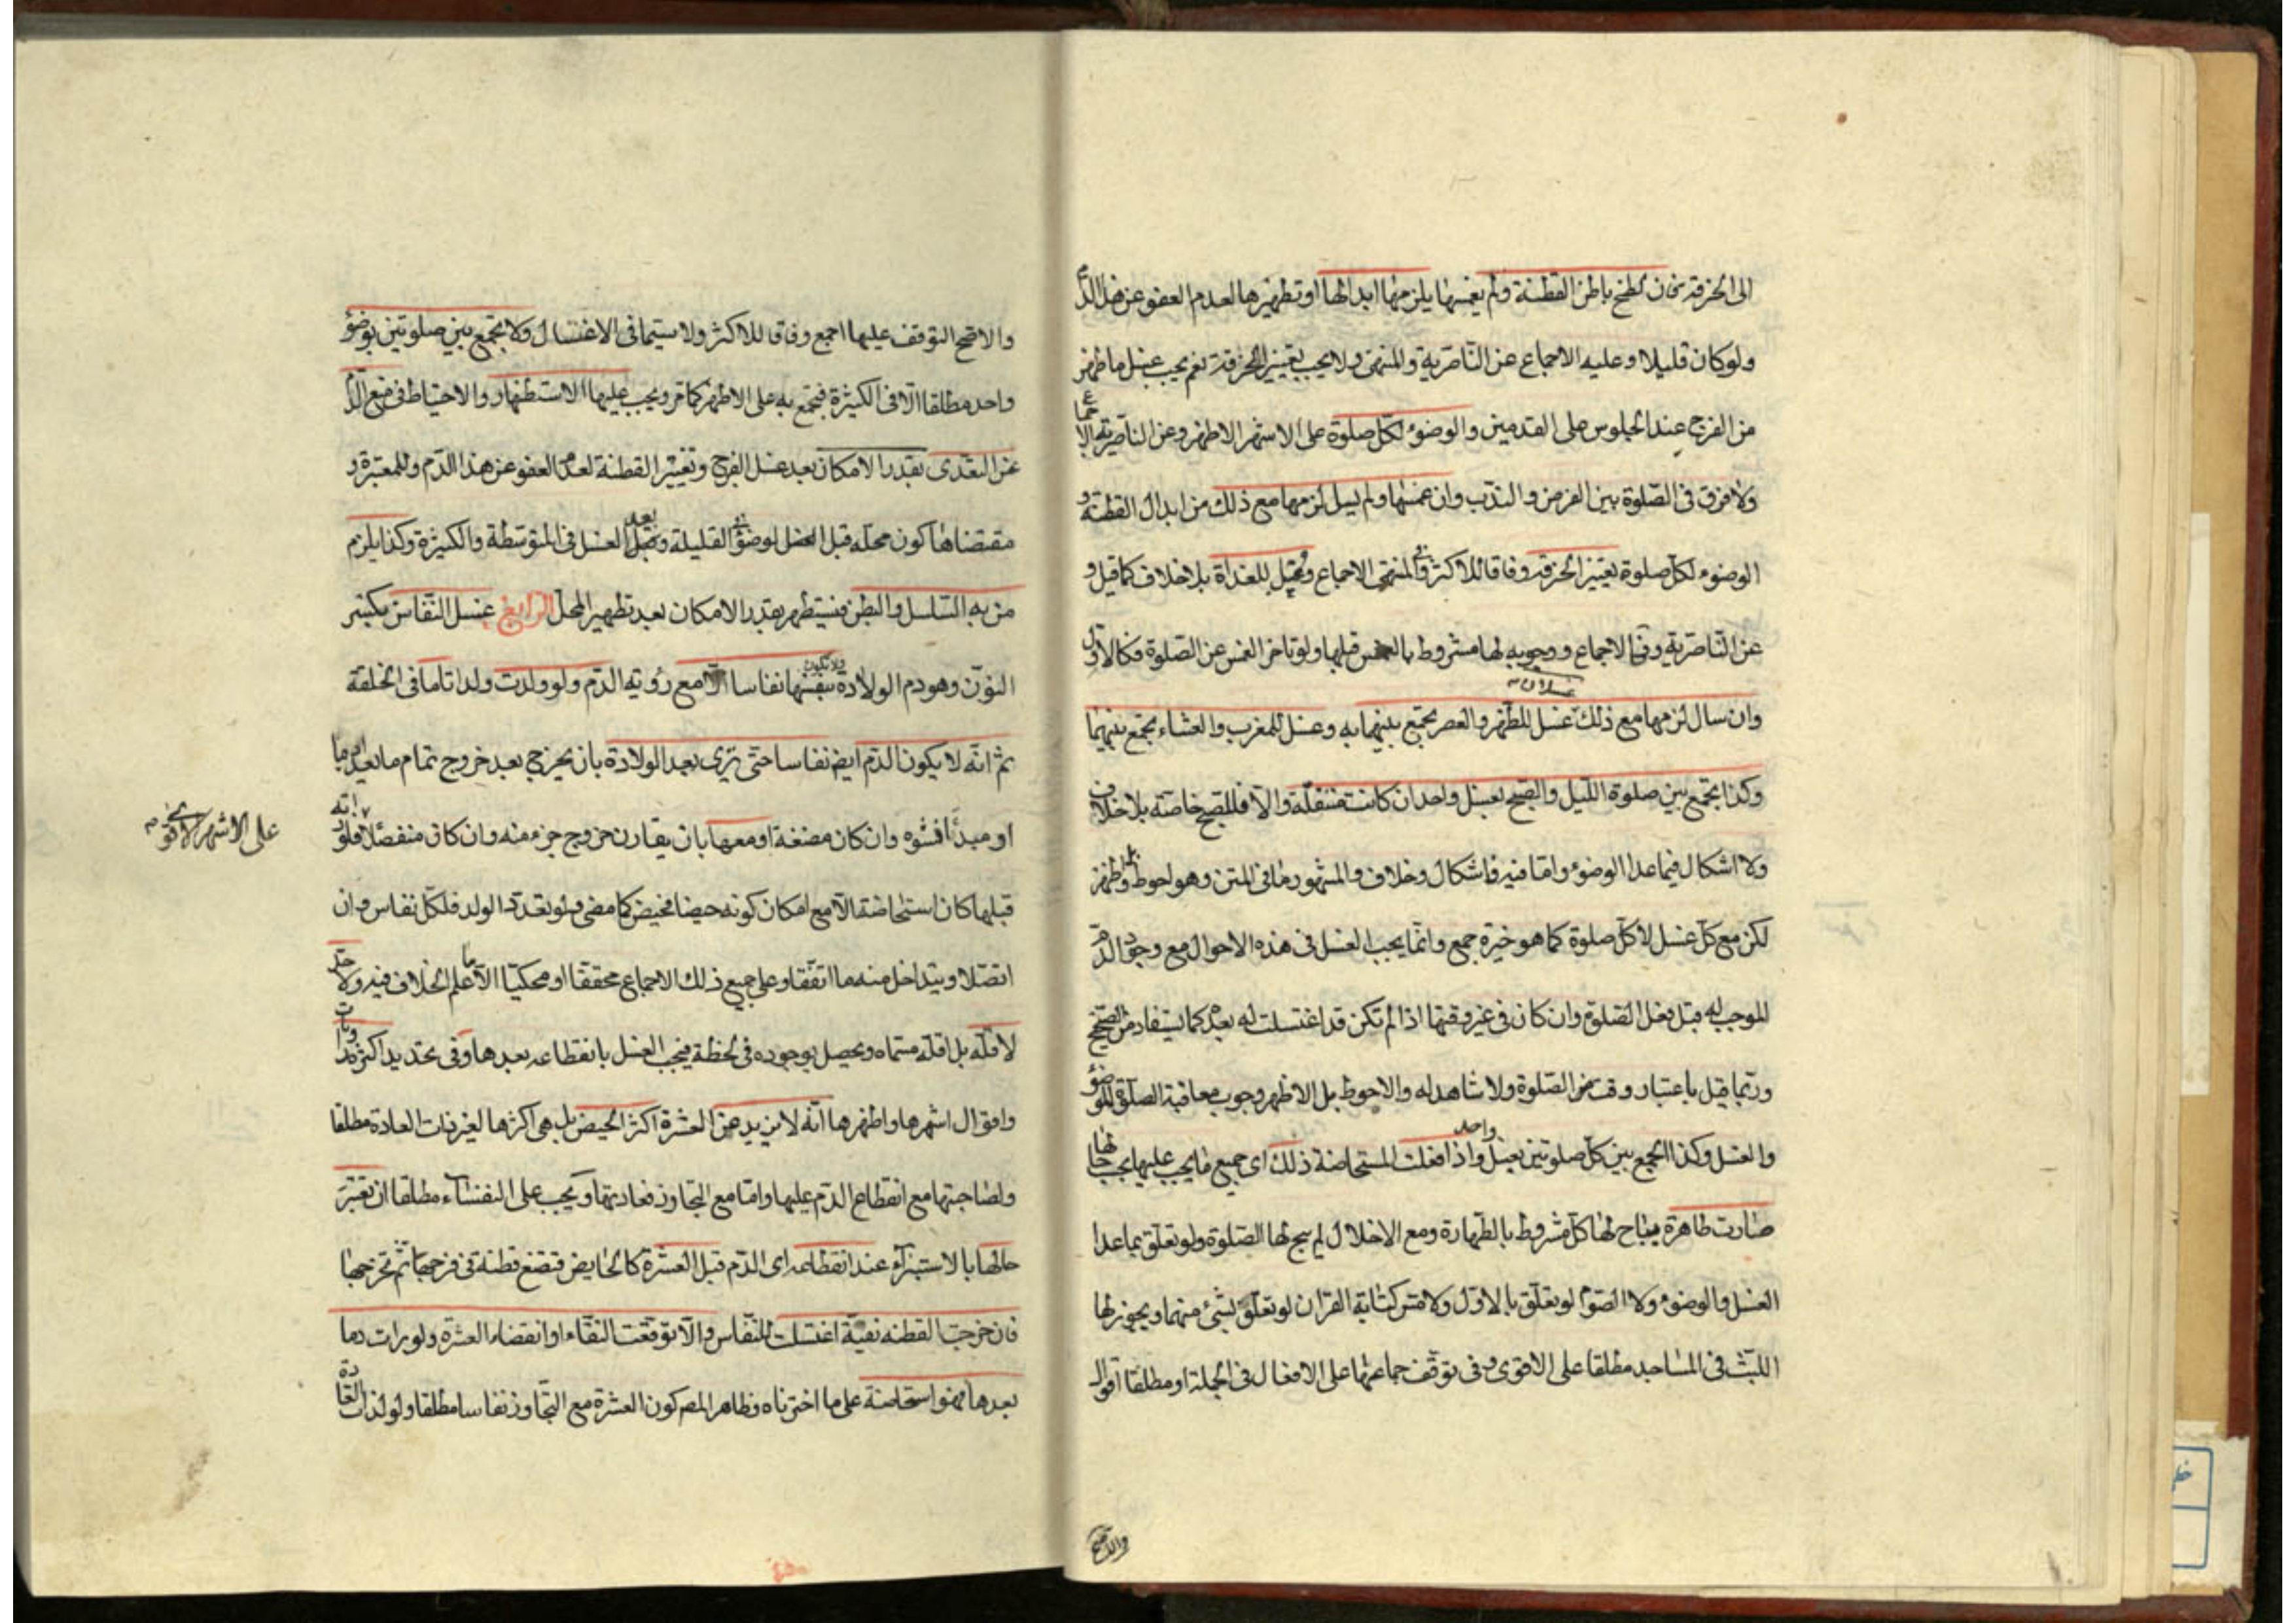 الى الخرقة فان لطخ باطن القطنة ولم يغمسها يلزمها ابدالها او تطهيرها لعدم العفو عن هذا الدم
ولو كان قليلا وعليه الاجماع عن الناصرية والمنتهى ولا يجب تغيير الخرقة نعم يجب غسل ما ظهر
من الفرج عند الجلوس على القدمين والوضوء لكل صلوة على الاشهر الاظهر وعن الناصرية الاجماع
ولا فرق في الصلوة بين الفرض والندب وان غمسها ولم يسل لزمها مع ذلك من ابدال القطنة و
الوضوء لكل صلوة تغيير الخرقة وفاقا للاكثر وفي المنتهى الاجماع وغسل للغداة بلا خلاف كما قيل و
عن الناصرية وف الاجماع ووجوبه لها مشروط بالغمس قبلها ولو تاخر الغمس عن الصلوة فكالاول
وان سال لزمها مع ذلك غسلان غسل للظهر والعصر تجمع بينهما به وغسل للمغرب والعشاء تجمع بينهما
وكذا تجمع بين صلوة الليل والصبح بغسل واحد ان كانت متنفلة والا فللصبح خاصة بلا خلاف
ولا اشكال فيما عدا الوضوء واما فيه فاشكال وخلاف والمشهور ما في المتن وهو احوط بل واظهر
لكن مع كل غسل لا كل صلوة كما هو خيرة جمع وانما يجب الغسل في هذه الاحوال مع وجود الدم
الموجب له قبل فعل الصلوة وان كان في غير وقتها اذا لم تكن قد اغتسلت له بعده كما يستفاد من الصحيح
وربما قيل باعتبار وقت الصلوة ولا شاهد له والاحوط بل الاظهر وجوب معاقبة الصلوة للوضوء
والغسل وكذا الجمع بين كل صلوتين بغسل واحد واذا فعلت المستحاضة ذلك اي جميع ما يجب عليها بحسب حالها
صارت طاهرة يباح لها كل مشروط بالطهارة ومع الاخلال لم يبح لها الصلوة ولو تعلق بما عدا
الغسل والوضوء ولا الصوم لو تعلق بالاول ولا مس كتابة القران لو تعلق بشئ منهما ويجوز لها
اللبث في المساجد مطلقا على الاقوى وفي توقف جماعها على الافعال في الجملة او مطلقا اقوال
والاصح
والاصح التوقف عليها اجمع وفاقا للاكثر ولا سيما في الاغتسال ولا تجمع بين صلوتين بوضوء
واحد مطلقا الا في الكثيرة فتجمع به على الاظهر كما مر ويجب عليها الاستظهار والاحتياط في منع الدم
عن التعدى بقدر الامكان بعد غسل الفرج وتغيير القطنة لعدم العفو عن هذا الدم وللمعتبرة و
مقتضاها كون محله قبل الوضوء في القليلة وبعد الغسل في المتوسطة والكثيرة وكذا يلزم
من به السلسل والبطن فيستظهر بقدر الامكان بعد تطهير المحل الرابع غسل النفاس بكسر
النون وهو دم الولادة ولا تكون بنفسها نفاسا الا مع رؤية الدم ولو ولدت ولدا تاما في الخلقة
ثم انه لا يكون الدم ايضا نفاسا حتى تري بعد الولادة بان يخرج بعد خروج تمام ما يعد ادميا
او مبدأ نشوه وان كان مضغة او معها بان يقارن خروج جزء منه وان كان منفصلا فلو رأته
على الاشهر الاقوى
قبلها كان استحاضة الا مع امكان كونه حيضا فحيض كما مضى ولو تعدد الولد فلكل نفاس وان
اتصلا ويتداخل منه ما اتفقا وعلى جميع ذلك الاجماع محققا او محكيا الا ما علم الخلاف فيه ولا حد
لاقله بل اقله مسماه ويحصل بوجوده في لحظة فيجب الغسل بانقطاعه بعدها وفي تحديد اكثره روايات
واقوال اشهرها واظهرها انه لا يزيد عن العشرة اكثر الحيض بل هي اكثرها لغير ذات العادة مطلقا
ولصاحبتها مع انقطاع الدم عليها واما مع التجاوز فعادتها ويجب على النفساء مطلقا ان تعتبر
حالها بالاستبراء عند انقطاعه اى الدم قبل العشرة كالحايض فتضع قطنة في فرجها ثم تخرجها
فان خرجت القطنة نقية اغتسلت للنفاس والا توقعت النقاء او انقضاء العشرة ولو رات دما
بعدها فهو استحاضة على ما اخترناه وظاهر المص كون العشرة مع التجاوز نفاسا مطلقا ولو لذات العادة